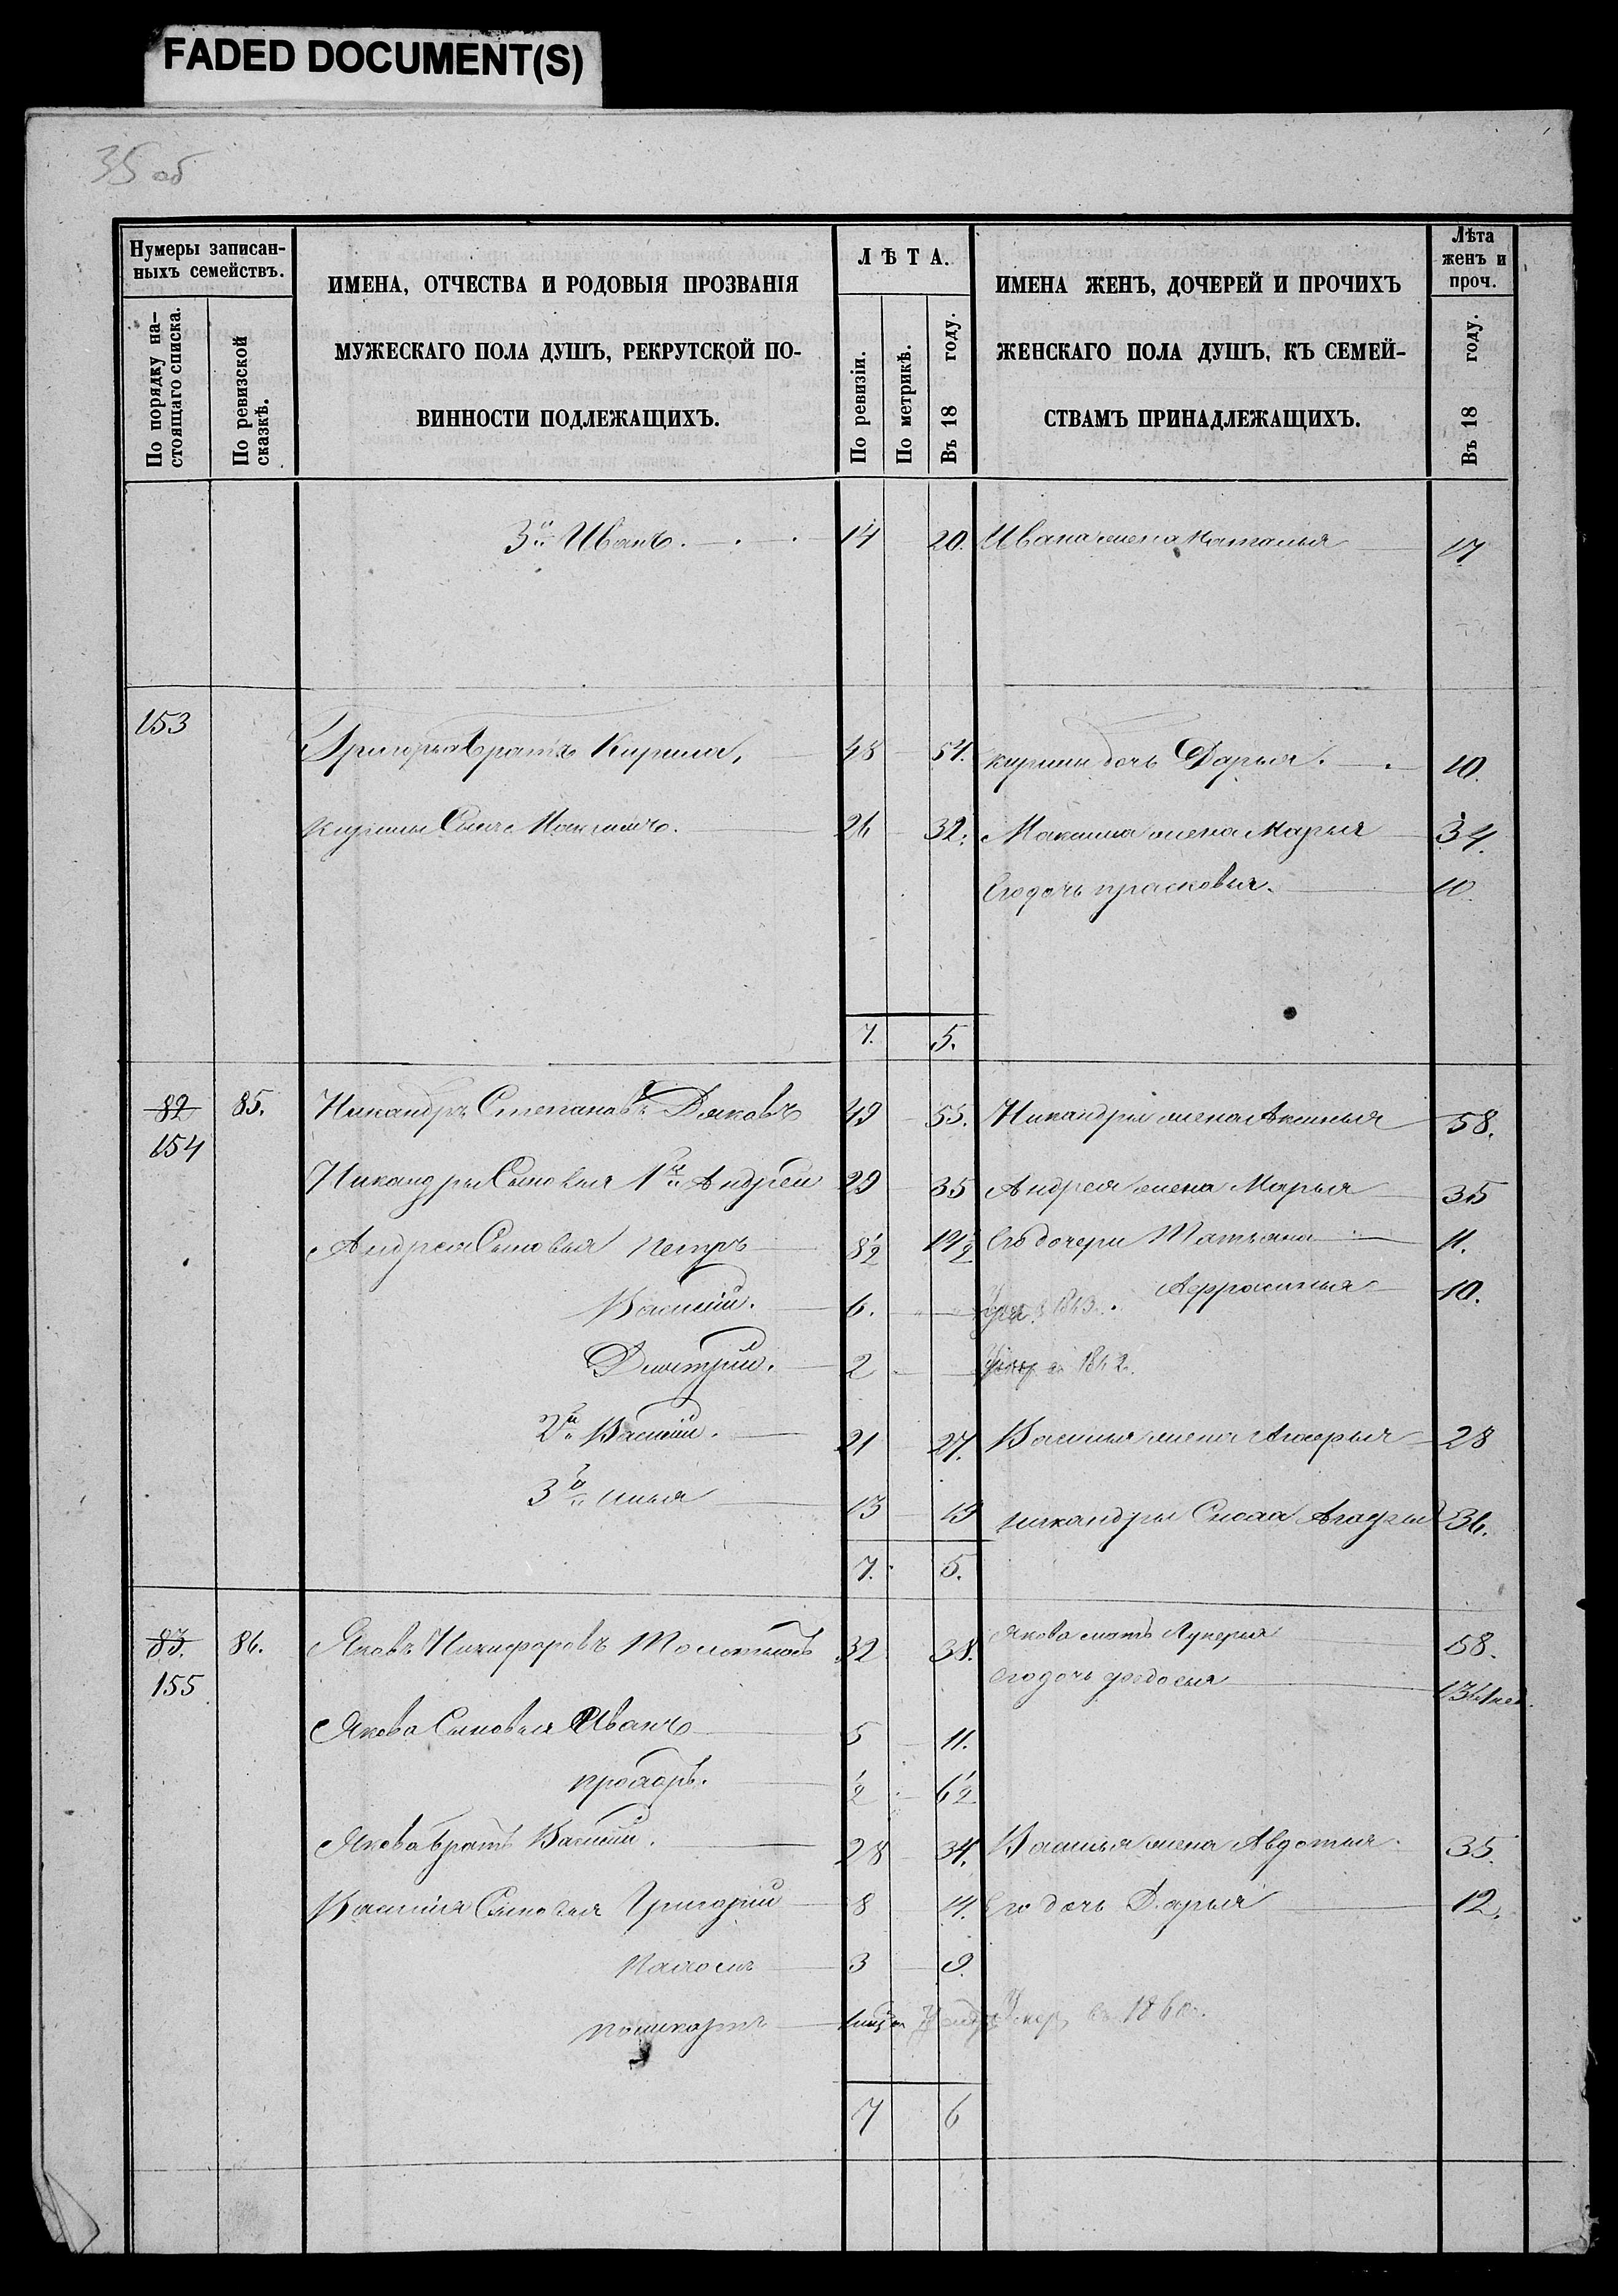 FADED DOCUMENT(S)
35 об
Нумеры записан-
ныхъ семействъ.
По порядку на-
стоящаго списка.
По ревизской
сказкѣ.
ИМЕНА, ОТЧЕСТВА И РОДОВЫЯ ПРОЗВАНІЯ
МУЖЕСКАГО ПОЛА ДУШЪ, РЕКРУТСКОЙ ПО-
ВИННОСТИ ПОДЛЕЖАЩИХЪ.
ЛѢТА.
По ревизіи.
По метрикѣ.
Въ 18 году.
ИМЕНА ЖЕНЪ, ДОЧЕРЕЙ И ПРОЧИХЪ
ЖЕНСКАГО ПОЛА ДУШЪ, КЪ СЕМЕЙ-
СТВАМЪ ПРИНАДЛЕЖАЩИХЪ.
Лѣта
женъ и
проч.
Въ 18 году.
3й Иванъ. 14 20. Ивана жена Наталья 17
153
Григорья братъ Кирила, 48 54. кирилы дочь Дарья. 10.
Кирилы Сынъ Максимъ. 26 32. Максима жена Марья 34.
Его дочь прасковья. 10.
7. 5.
82 85. Никандръ Степановъ Дьяковъ 49 55. Никандры жена Аксинья 58.
154
Никандры Сыновья 1й Андрей 29 35 Андрея жена Марья 35
Андрея Сыновья петръ 8½ 14½ Его дочери Татьяна 11.
Василий. 6. 1863. Афросинья 10.
Дмитрий. 2 Умер в 1862.
2й Василий. 21 27. Василья жена 28
3й илья 13 19 никандры Сноха 36.
7. 5.
83. 86. Яковъ Никифоровъ 32 38. Якова мать Лукерья 58.
155 Его дочь федосья
Якова Сыновья Иванъ 5 11.
прохоръ. ½ 6½
Якова братъ Василий. 28 34. Василья жена Авдотья 35.
Василия Сыновья Григорий 8 14. Его дочь Дарья 12.
3 9.
Умер в 1860.
7 6